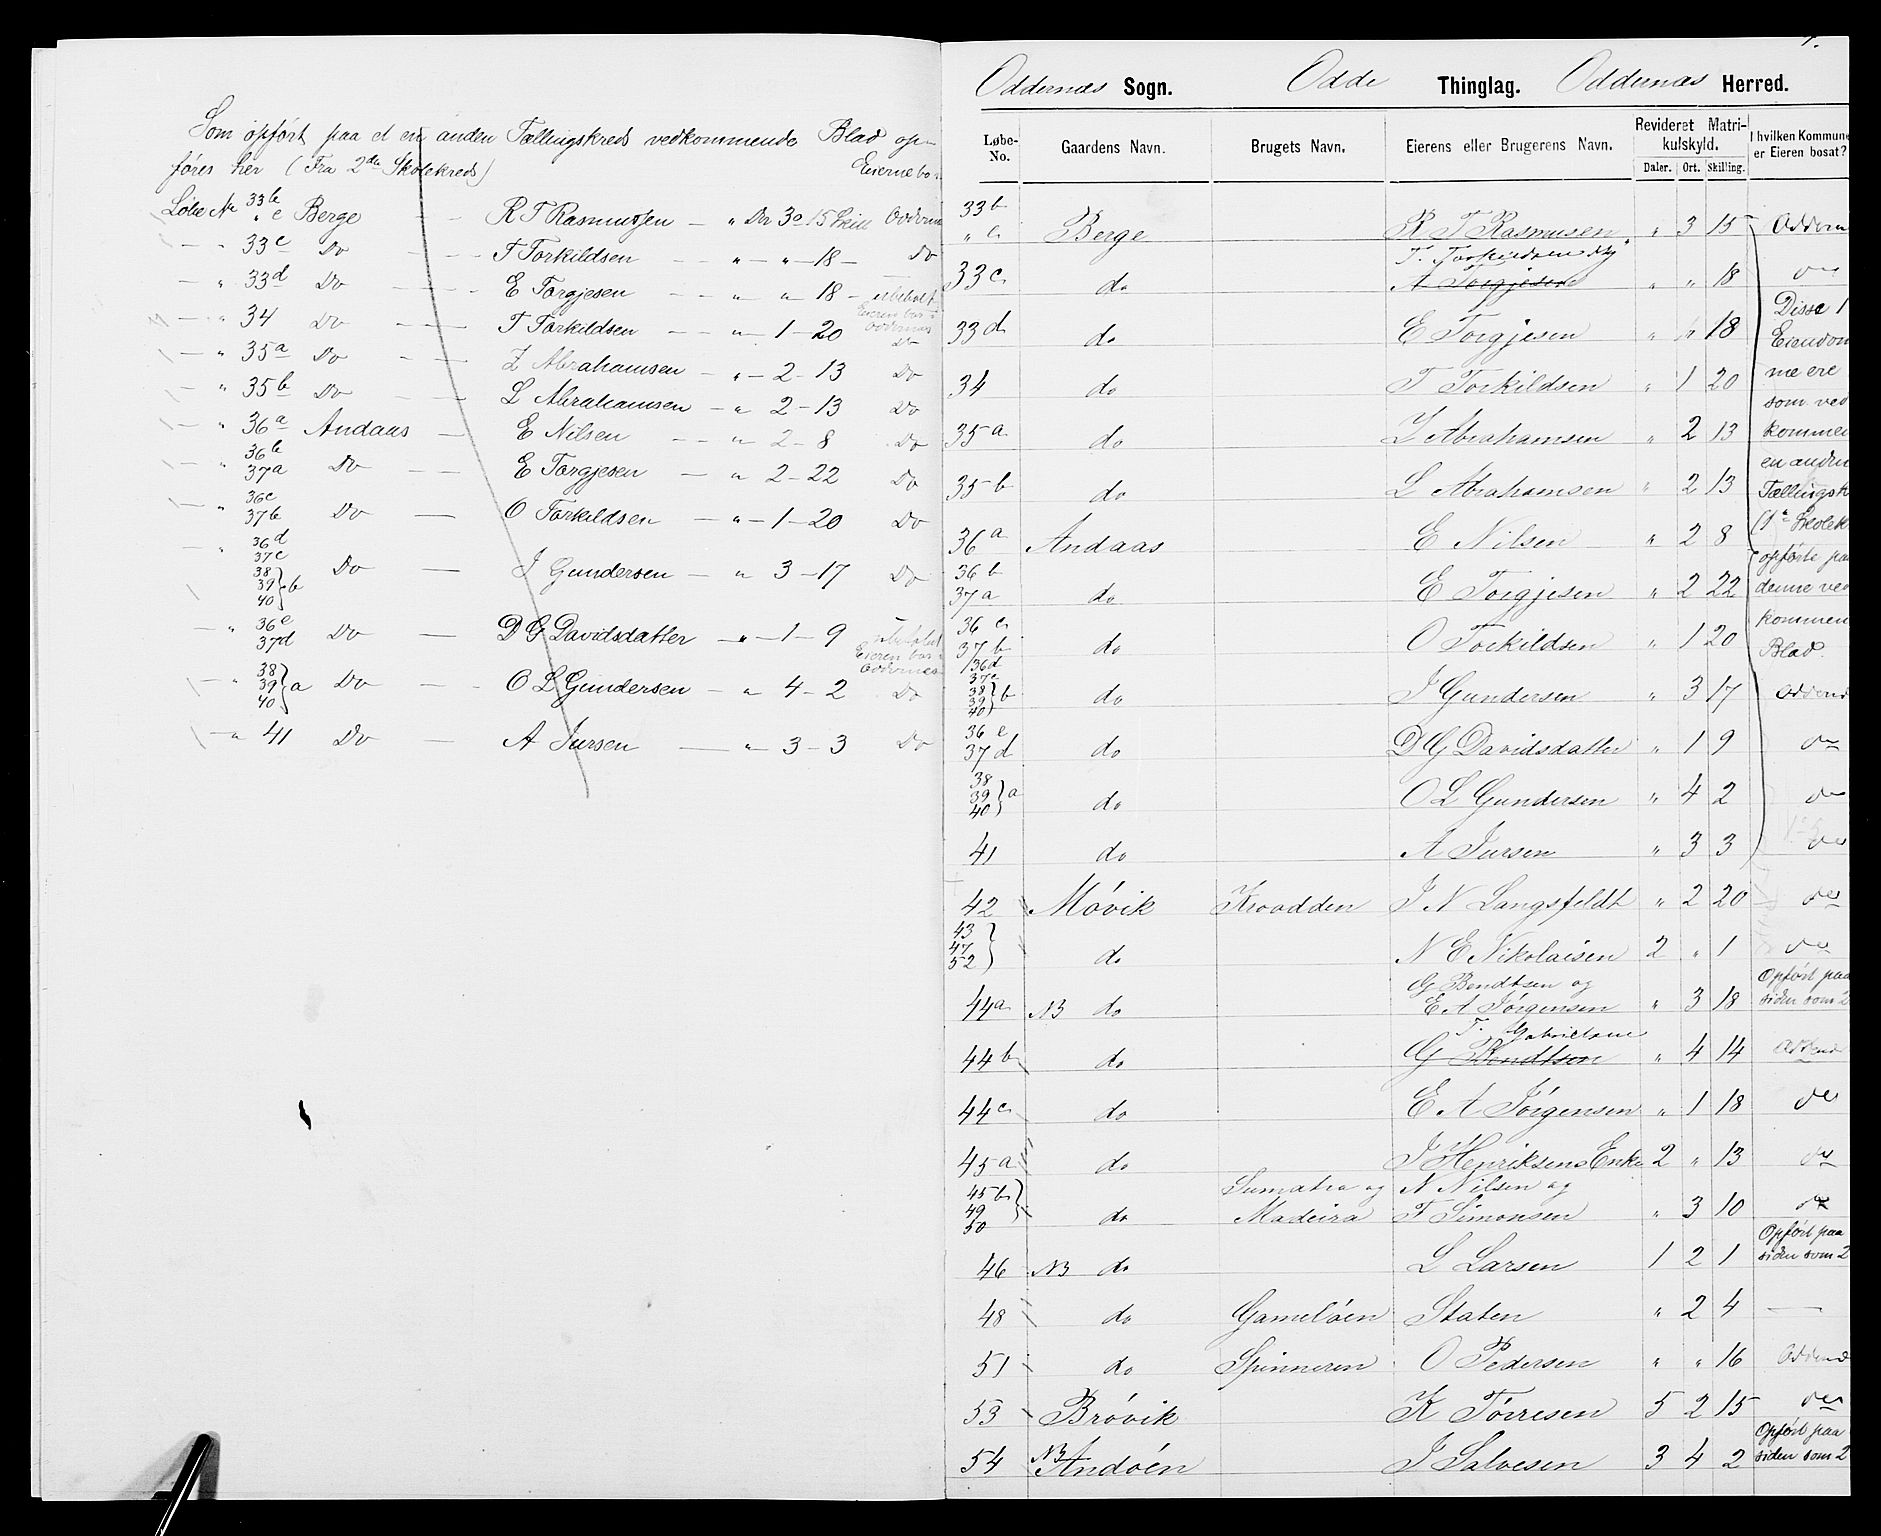 Som opført paa et en anden Tællingskreds vedkommende Blad op-
føres her (Fra 2den Skolekreds) Eierne bo
Løbe No 33b " e Berge — R T Rasmussen — " Da 3 o 15 Skill Oddernæs
— " 33c Do — T Torkildsen — " — " — 18 — Do
— " 33d Do — E Torgjesen — " " 18 — ubebolt
Eieren bor i
Oddernæs
— " 34 Do — T Torkildsen — " — 1 — 20 Do
— " 35a Do — Z Abrahamsen — " — 2 — 13 Do
— " 35b Do — L Abrahamsen — " 2 — 13 Do
— " 36a Andaas — E Nilsen — " — 2 — 8 Do
— " 36b 37a Do — E Torgjesen — " 2 — 22 Do
— " 36c 37b Do — O Torkildsen — " — 1 — 20 Do
— " 36d 37c 38 39 40 } b Do — J Gundersen — " 3 — 17 Do
— " 36e 37d Do — D G Davidsdatter — " — 1 — 9
Eieren bor i
Oddernæs
— " 38 39 40 } a Do — O L Gundersen — " 4 — 2 Do
— " 41 Do — A Jursen — " — 3 — 3 Do
Oddernæs Sogn. Odde Thinglag. Oddernæs Herred.
Løbe-No. Gaardens Navn. Brugets Navn. Eierens eller Brugerens Navn. Revideret Matri-kulskyld. I hvilken Kommune er Eieren bosat?
Daler. Ort. Skilling.
33b " e Berge R T Rasmusen " 3 15 Oddern
T. Torkildsen
33c do A Torgjesen " " 18 do
33d do E Torgjesen " " 18 Disse 1
Eiendom
34 do T Torkildsen " 1 20 me ere
som ved
35a do Z Abrahamsen " 2 13 kommen
en anden
35b do L Abrahamsen " 2 13 Tællingsk
36a Andaas E Nilsen " 2 8 Skolek
opførte paa
36b 37a do E Torgjesen " 2 22 denne ved
kommen
36c 37b do O Torkildsen " 1 20 Blad.
36d 37c 38 39 40 } b do J Gundersen " 3 17 Oddernæ
36e 37d do D G Davidsdatter " 1 9 do
38 39 40 } a do O L Gundersen " 4 2 do
41 do A Jursen " 3 3 do
42 Møvik Kroodden J N Langsfeldt " 2 20 do
43 47 52 } do N E Nikolaisen 2 " 1 do
44a NB do G Bendtsen og E A Jørgensen " 3 18 Opført paa siden som 2
T. Gabrielsen
44b do G Bendtsen " 4 14 Oddernæ
44c do E A Jørgensen " 1 18 do
45a do J Henriksens Enke 2 " 13 do
45b 49 50 } do Sumatra og Madeira N Nilsen og F Simonsen " 3 10 do
46 NB do L Larsen 1 2 1 Opført paa siden som 2
48 do Gameløen Staten " 2 4 —
51 do Spinneren O Pedersen " " 16 Oddernæ
53 Brøvik K Tørresen 5 2 15 do
54 NB Andøen J Salvesen 3 4 2 Opført paa siden som 2